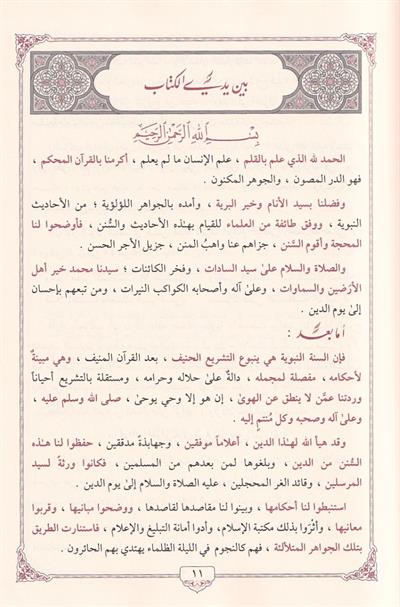 بين يدي الكتاب
بسم الله الرحمن الرحيم
الحمد لله الذي علم بالقلم ، علم الإنسان ما لم يعلم ، أكرمنا بالقرآن المحكم ،
فهو الدر المصون ، والجوهر المكنون .
وفضلنا بسيد الأنام وخير البرية ، وأمده بالجواهر اللؤلؤية ؛ من الأحاديث
النبوية ، ووفق طائفة من العلماء للقيام بهٰذه الأحاديث والسُّنن ، فأوضحوا لنا
المحجة وأقوم السَّنن ، جزاهم عنا واهبُ المنن ، جزيل الأجر الحسن .
والصلاة والسلام علىٰ سيد السادات ، وفخر الكائنات ؛ سيدنا محمد خير أهل
الأرَضين والسماوات ، وعلىٰ آله وأصحابه الكواكب النيرات ، ومن تبعهم بإحسان
إلىٰ يوم الدين .
أما بعد :
فإن السنة النبوية هي ينبوع التشريع الحنيف ، بعد القرآن المنيف ، وهي مبينةٌ
لأحكامه ، مفصلة لمجمله ، دالةٌ علىٰ حلاله وحرامه ، ومستقلة بالتشريع أحياناً
وردتنا عمَّن لا ينطق عن الهوىٰ ، إن هو إلا وحي يوحىٰ ، صلى الله وسلم عليه ،
وعلىٰ آله وصحبه وكل مُنتمٍ إليه .
وقد هيأ الله لهٰذا الدين ، أعلاماً موفقين ، وجهابذةً مدققين ، حفظوا لنا هٰذه
السُّنن من الدين ، وبلغوها لمن بعدهم من المسلمين ، فكانوا ورثةً لسيد
المرسلين ، وقائد الغر المحجلين ، عليه الصلاة والسلام إلىٰ يوم الدين .
استنبطوا لنا أحكامها ، وبينوا لنا مقاصدها لقاصدها ، ووضحوا مبانيها ، وقربوا
معانيها ، وأثْرَوا بذلك مكتبة الإسلام، وأدوا أمانة التبليغ والإعلام ، فاستنارت الطريق
بتلك الجواهر المتلألئة ، فهم كالنجوم في الليلة الظلماء يهتدي بهم الحائرون .
١١